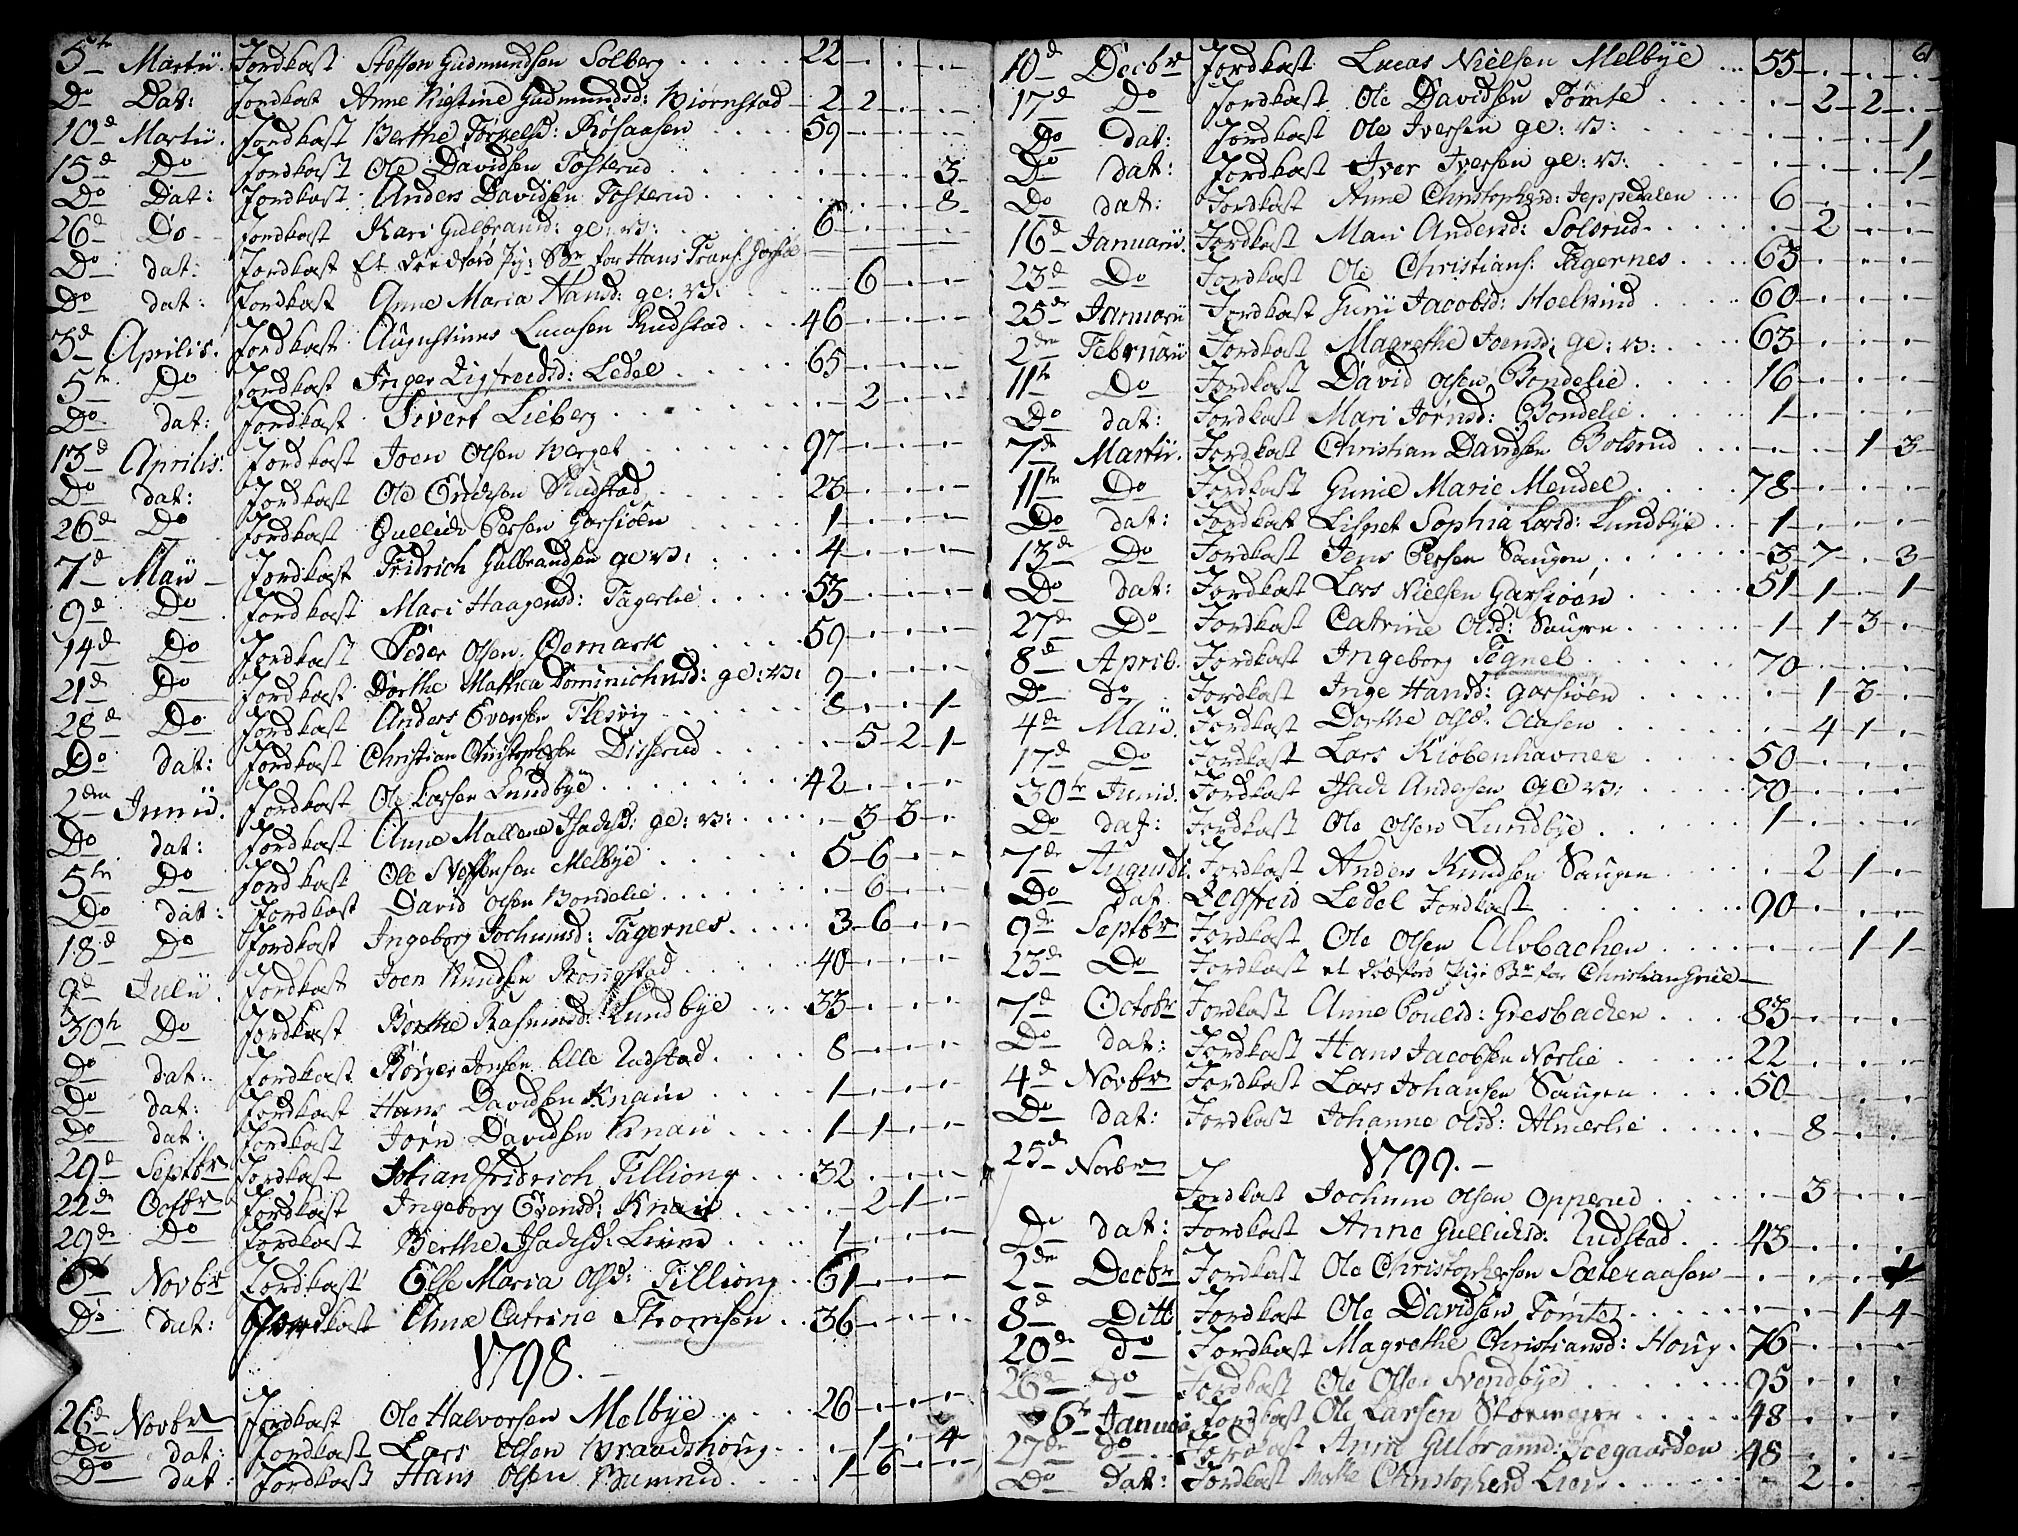 5te Martii. Jordkast Steffen Gudmundsen Solberg 22 . . .
Do Dat: Jordkast Anne Kistine Gudmundsd: Biørnstad 2 2 . .
10de Martii. Jordkast Berthe Torkelsd: Røsaasen 59 . . .
15de Do Jordkast Ole Davidsen Tosterud . . . 3
Do Dat: Jordkast Anders Davidsen Tosterud . . . 8
26de Do Jordkast Kari Gulbransd: ge: v: 6 . . .
Do dat: Jordkast Et dødfød Pig: Bn for Hans
Do dat: Jordkast Anne Maria Hansd: ge: v: . 6 . .
3de Aprilis. Jordkast Augustinus Lucasen Rudstad 46 . . .
5te Do Jordkast Inger Sigfreidsd: Ledel 65 . . .
Do dat: Jordkast Sivert Lieberg . 2 . .
13de Aprilis. Jordkast Joen Olsen Berget 97 . . .
Do dat: Jordkast Ole Endresen Rudstad 23 . . .
26de Do Jordkast Gullich Persen Garsiøen 1 . . .
7de Maii Jordkast Fridrich Gulbrandsen ge v: 4 . . .
9de Do Jordkast Mari Haagensd: Tagerlie 53 . . .
14de Do Jordkast Peder Olsen Oemark 59 . . .
21de Do Jordkast Dorthe Mathea Dominichusd: ge: v: 9 . . .
28de Do Jordkast Anders Evensen Flesvig 8 . . 1
Do dat: Jordkast Christian Christophersen Diserud . 5 2 1
2den Junii. Jordkast Ole Larsen Lundbye 42 . . .
Do dat: Jordkast Anne Mallene Isachsd: ge: v: . 3 3 .
5te Do Jordkast Ole Steffensen Melbye 5 6 . .
Do dat: Jordkast David Olsen Bondelie . 6 . .
18de Do Jordkast Ingeborg Jochumsd: Tagernes 3 6 . .
9de Julii. Jordkast Joen Knudsen Kongstad 40 . . .
30te Do Jordkast Berthe Rasmusd: Lundbye 33 . . .
Do dat: Jordkast Børger Jonsen Elle Rudstad 8 . . .
Do dat: Jordkast Hans Davidsen Knain 1 . . .
Do dat: Jordkast Jørn Davidsen Knain 1 1 . .
29de Septbr Jordkast Johan Fridrich Tilliong 32 . . .
22de Octbr Jordkast Ingeborg Evensd: Knain . 2 1 .
29de Do Jordkast Berthe Isachsd: Lund 1 . . .
6te Novbr Jordkast Else Maria Olsd: Tilliong 61 . . .
Do dat: Jordkast Anne Catrine Thomsen 36 . . .
1798.
26de Novbr Jordkast Ole Halvorsen Melbye 26 . . .
Do dat: Jordkast Lars Olsen Braadshoug . 1 . 4
Do dat: Jordkast Hans Olsen Bamrud 1 6 . .
61
10de Decbr Jordkast Lucas Nielsen Melbye 55 . . .
17de Do Jordkast Ole Davidsen Tomte . 2 2 .
Do dat: Jordkast Ole Iversen ge: v: . . . 1
Do dat: Jordkast Iver Iversen ge: v: . . . 1
Do dat: Jordkast Anne Christophersd: Jeppedalen 6 . . .
16de Januarii. Jordkast Mari Andersd: Solsrud . 2 . .
23de Do Jordkast Ole Christians: Tagernes 63 . . .
25de Januarii Jordkast Guri Jacobsd: Hoelkind 60 . . .
2den Februarii Jordkast Magrethe Joensd: ge: v: 63 . . .
11te Do Jordkast David Olsen Bondelie 16 . . .
Do dat: Jordkast Mari Jørnsd: Bondelie 1 . . .
7de Martii. Jordkast Christian Davidsen Bolsrud . . 1 3
11te Do Jordkast Gunie Marie Mendel 78 . . .
Do dat: Jordkast Lispet Sophia Larsd: Lundbye 1 . . .
13de Do Jordkast Jens Persen Saugen 3 7 . 3
Do dat: Jordkast Lars Nielsen Garsiøen 51 1 . 1
27de Do Jordkast Catrine Olsd: Saugen 1 1 3 .
8de April. Jordkast Ingeborg Tegnel 70 . . .
Do do Jordkast Inge Hansd: Garsiøen . 1 3 .
4de Maii. Jordkast Dorthe Olsd: Aasen . 4 1 .
17de Do Jordkast Lars Kiøbenhavner 50 . . .
30te Junii. Jordkast Isach Andersen ge v: 70 . . .
Do dat: Jordkast Ole Olsen Lundbye 1 . . .
7de Augusti. Jordkast Anders Knudsen Saugen . 2 1 .
Do Dat Segfreid Ledel Jordkast 90 . . .
9de Septbr Jordkast Ole Olsen Alsbachen . . 1 1
23de Do Jordkast et dødfød Pige Bn for Christian Grue
7de Octobr Jordkast Anne Poulsd: Gresbachen 83 . . .
Do dat: Jordkast Hans Jacobsen Norlie 22 . . .
4de Novbr Jordkast Lars Johansen Saugen 50 . . .
Do dat: Jordkast Johanne Olsd: Almerlie . 8 . .
1799.
25de Novbr Jordkast Jochum Olsen Opperud . 3 . .
Do dat: Jordkast Anne Gullichsd: Rudstad 43 . . .
2den Decbr Jordkast Ole Christophersen Sæteraasen . . . 1
8de Ditt Jordkast Ole Davidsen Tomte . . 1 4
20de do Jordkast Magrethe Christiansd: Houg 76 . . .
26de do Jordkast Ole Olsen Svendbye 95 . . .
6te Januar Jordkast Ole Larsen 48 . . .
27de do Jordkast Anne Gulbransd: Soegaarden 48 . . .
Do Dat: Jordkast Christophersd Lier . 2 . .